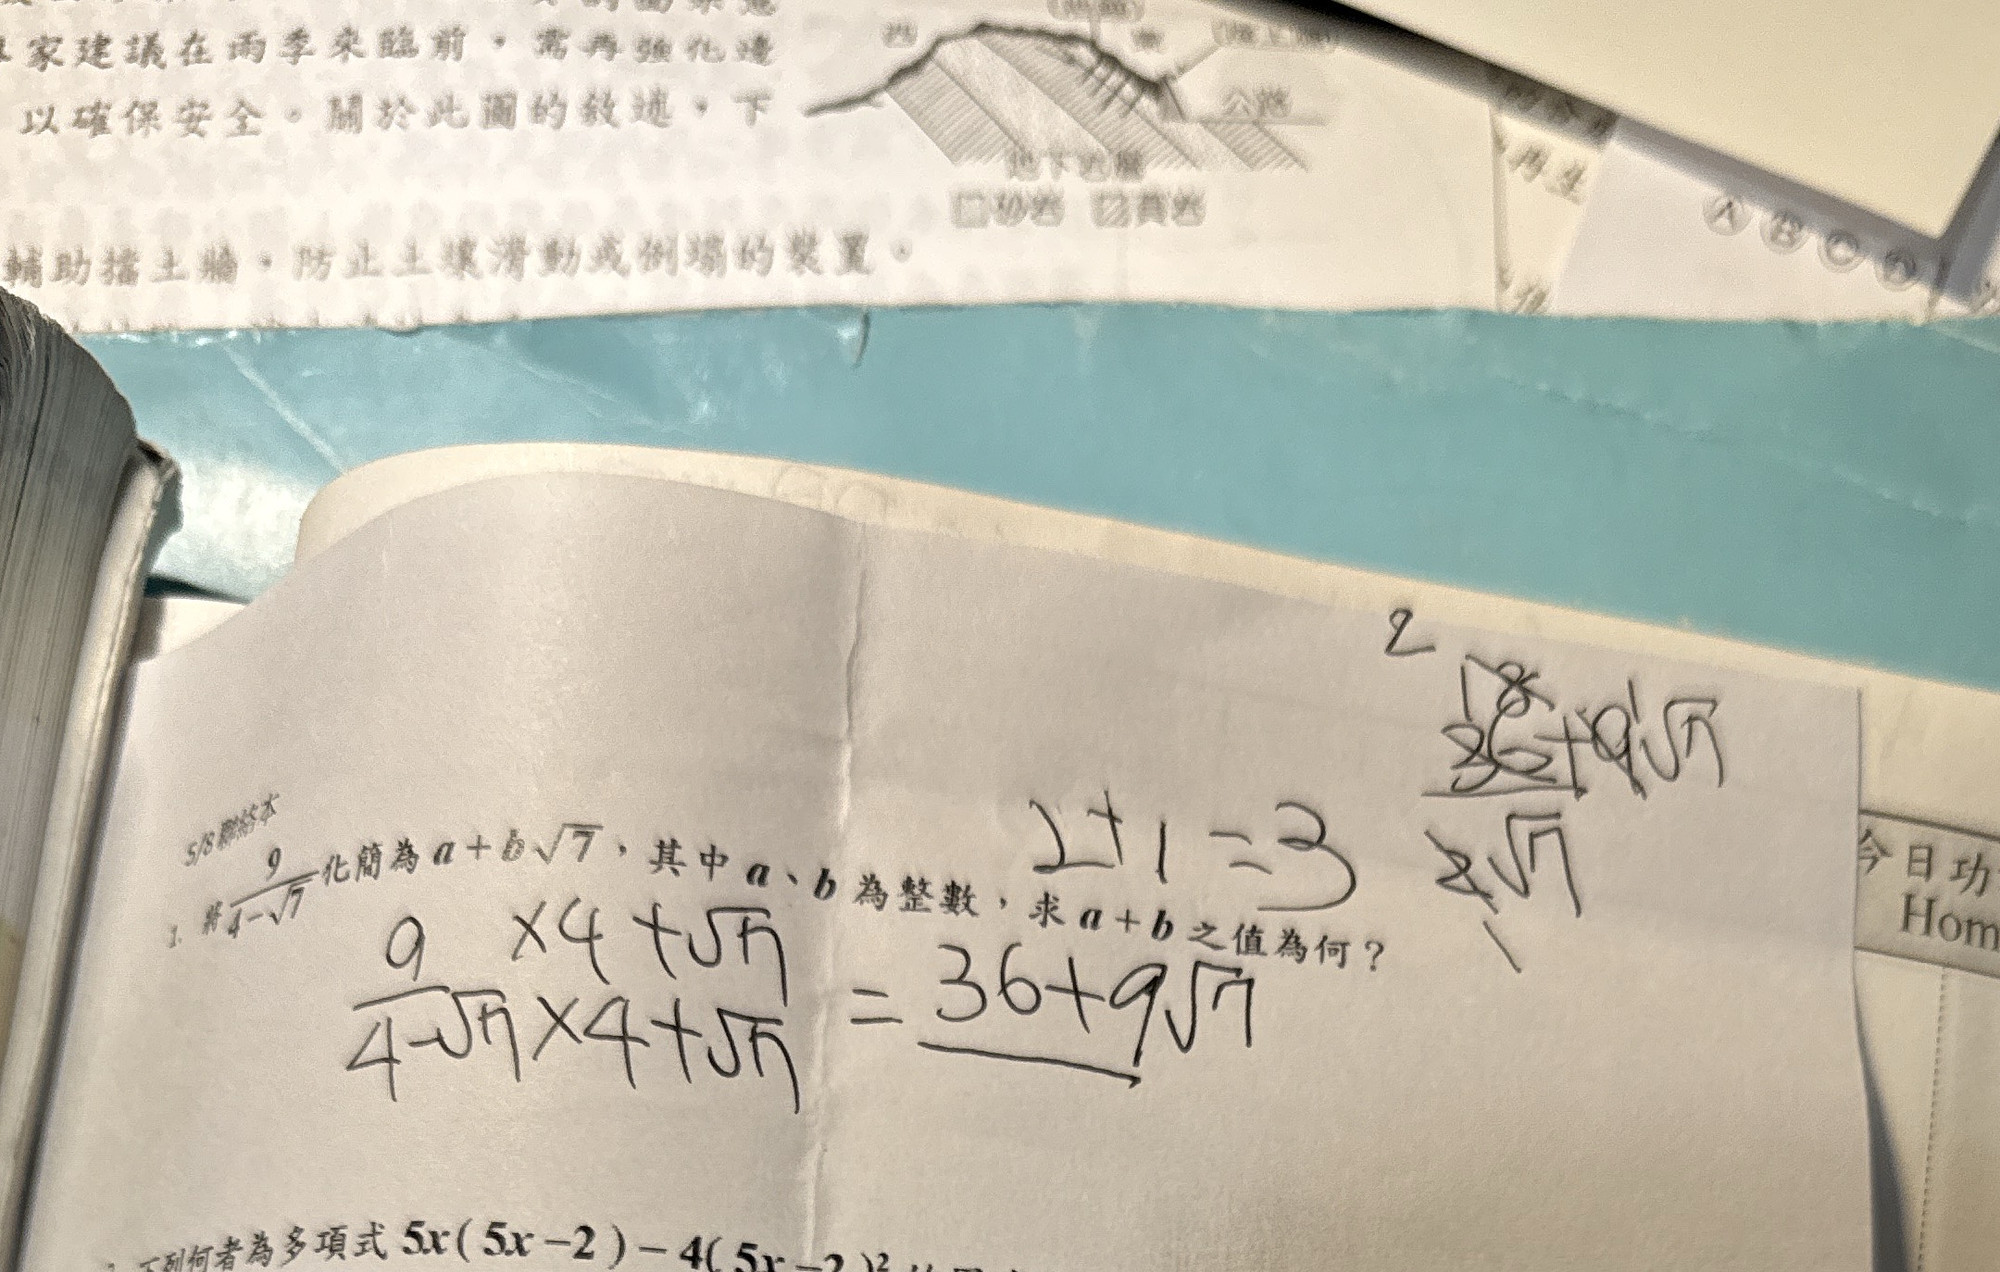 家建議在雨季來臨前，需再強化邊
以確保安全。關於此圖的敘述，下
輔助擋土牆，防止土壤滑動或倒塌的裝置。
西
東
公路
地下岩層
砂岩 頁岩
再生
A B C D
5/8聯絡本
1. 將 9/(4-√7) 化簡為 a+b√7，其中 a、b 為整數，求 a+b 之值為何？
2+1=3
9/(4-√7) ×4+√7/×4+√7 = 36+9√7
2
18
36+9√7
2√7
1
今日功
Hom
下列何者為多項式 5x(5x-2)-4(5x-2)²